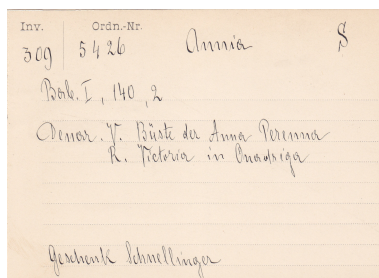 Inv. Ordn.-Nr.
309 5426 Annia S
Bab. I, 140, 2
Denar. V. Büste der Anna Perenna
R. Victoria in Quadriga
Geschenk Schnellinger